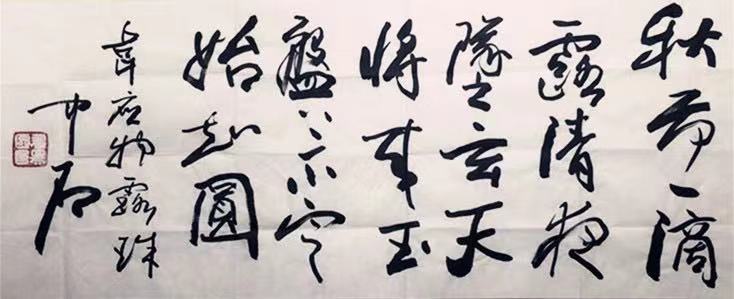 秋荷一滴
露清夜
墜玄天
將来玉
盤上不定
始知圓
韋应物露珠
中石